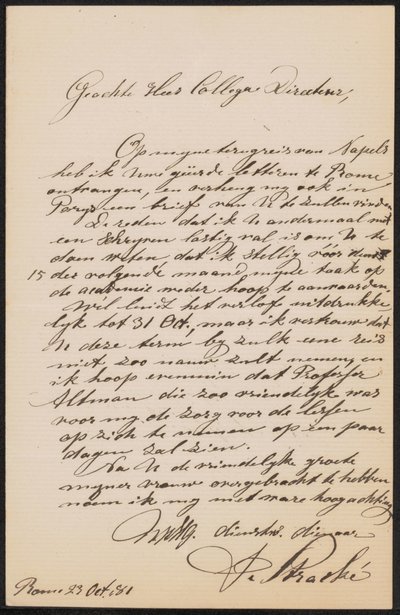 Geachte Heer Collega Directeur,
Op myne terugreis van Napels
heb ik Uwe geëerde letteren te Rome
ontvangen, en verheug my ook in
Parys een brief van U te zullen vinden
De reden dat ik U andermaal met
een schryven lastig val is om U te
doen weten, dat ik stellig vóór den
15 der volgende maand myne taak op
de academie weder hoop te aanvaarden.
Wél luidt het verlof uitdrukke
lyk tot 31 Oct, maar ik vertrouw dat
U deze term by zulk eene reis
niet zoo nauw zult nemen, en
ik hoop evenmin dat Professor
Altman die zoo vriendelyk was
voor my de zorg voor de lessen
op zich te nemen op een paar
dagen zal zien.
Na U de vriendelyke groete
myner vrouw overgebracht te hebben
noem ik my met ware hoogachting
UEdg. dienstw. dienaar
Stracké
Rome 23 Oct. 81